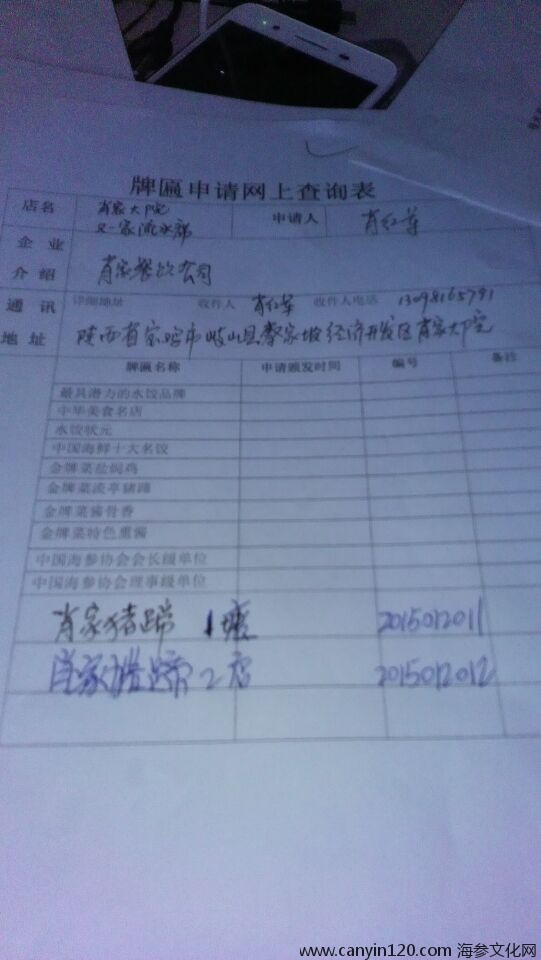 牌匾申请网上查询表
店名 肖家大院 申请人 肖红军
又一家流水席
企业
介绍 肖家餐饮公司
通讯 详细地址 收件人 肖红军 收件人电话
地址 陕西省宝鸡市岐山县蔡家坡经济开发区肖家大院
牌匾名称 申请颁发时间 编号 备注
最具潜力的水饺品牌
中华美食名店
水饺状元
中国海鲜十大名饺
金牌菜盐焗鸡
金牌菜凌亭猪蹄
金牌菜酱骨香
金牌菜特色熏酱
中国海参协会会长级单位
中国海参协会理事级单位
肖家猪蹄 1 2015012011
肖家猪蹄 2店 2015012012
www.canyin120.com 海参文化网